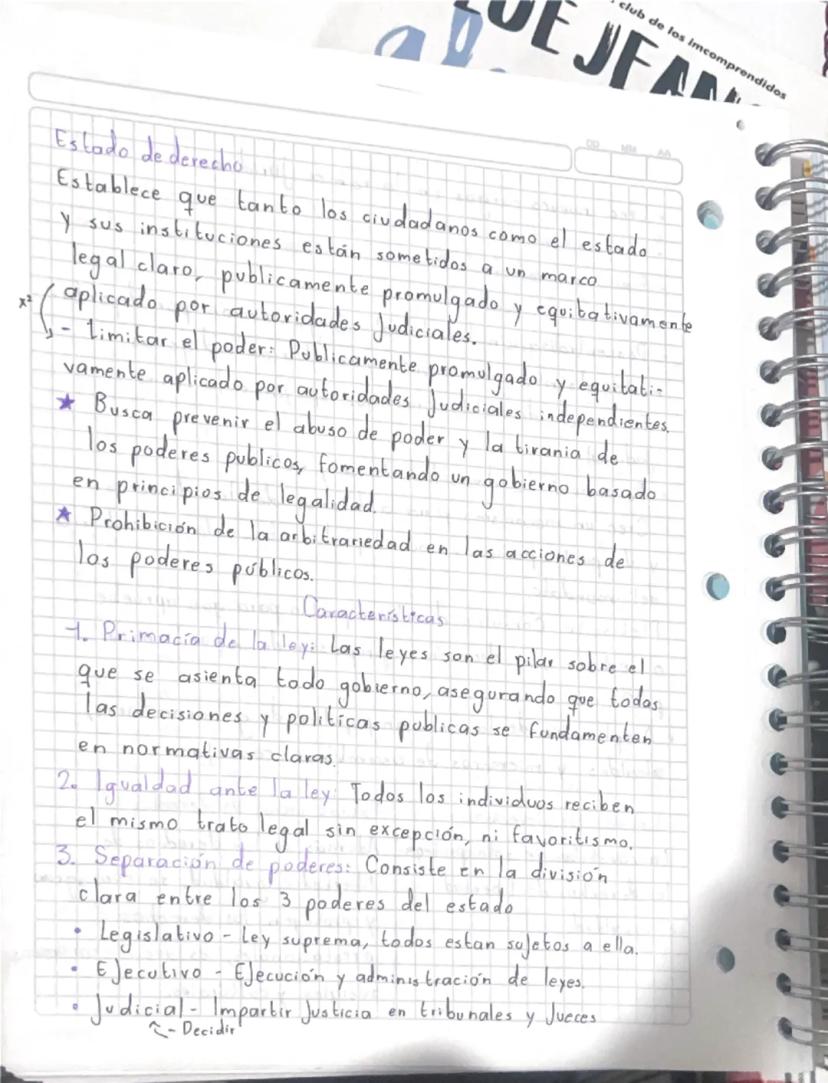 club de los imcomprendidos
QUE JEAN
DD MM AA
Estado de derecho
Establece que tanto los ciudadanos como el estado
y sus instituciones están sometidos a un marco
legal claro, publicamente promulgado y equitativamente
x² aplicado por autoridades Judiciales.
- Limitar el poder: Publicamente promulgado y equitati-
vamente aplicado por autoridades Judiciales independientes.
★ Busca prevenir el abuso de poder y la tirania de
los poderes publicos, fomentando un gobierno basado
en principios de legalidad.
★ Prohibición de la arbitrariedad en las acciones de
los poderes públicos.
Características
1. Primacía de la ley: Las leyes son el pilar sobre el
que se asienta todo gobierno, asegurando que todas
las decisiones y politicas publicas se fundamenten
en normativas claras.
2. Igualdad ante la ley: Todos los individuos reciben
el mismo trato legal sin excepción, ni favoritismo.
3. Separación de poderes: Consiste en la división
clara entre los 3 poderes del estado
• Legislativo - Ley suprema, todos estan sujetos a ella.
• Ejecutivo - Ejecución y administración de leyes.
• Judicial - Impartir Justicia en tribunales y Jueces
- Decidir